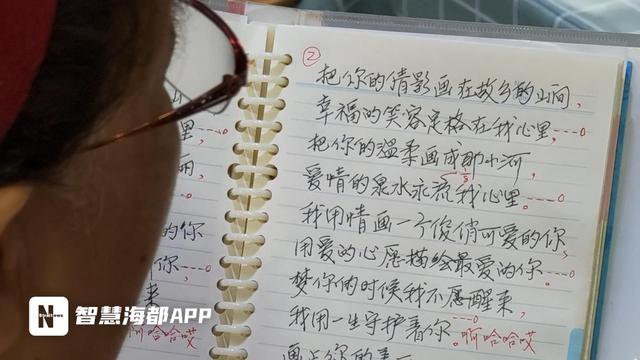 ②
把你的倩影画在故乡的山间,
幸福的笑容定格在我心里,---0
把你的温柔画成那小河,
爱情的泉水永流我心里。---0
我用情画一个俊俏可爱的你,
用爱的心愿描绘最爱的你。---0
梦你的时候我不愿醒来,
我用一生守护着你。啊哈哈哎
画上你的美
里,---0
丽,
的你
你---0
来
哈哈哎
N
智慧海都APP